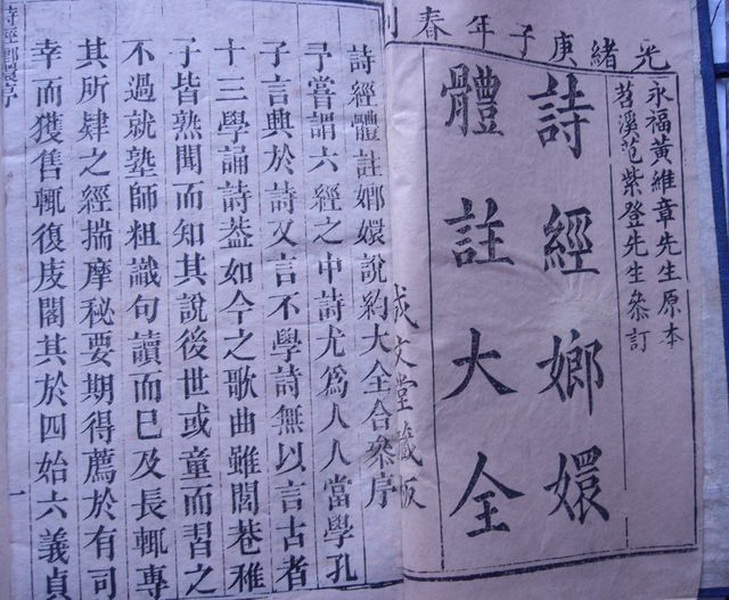 光緒庚子年春
永福黃維章先生原本
苕溪范紫登先生叅訂
詩經嫏嬛
體註大全
成文堂藏板
詩經體註嫏嬛說約大全合叅序
予嘗謂六經之中詩尤爲人人當學孔
子言興於詩又言不學詩無以言古者
十三學誦詩葢如今之歌曲雖閭巷稚
子皆熟聞而知其說後世或童而習之
不過就塾師粗識句讀而已及長輒專
其所肄之經揣摩秘要期得薦於有司
幸而獲售輒復庋閣其於四始六義貞
詩經嫏嬛序
一